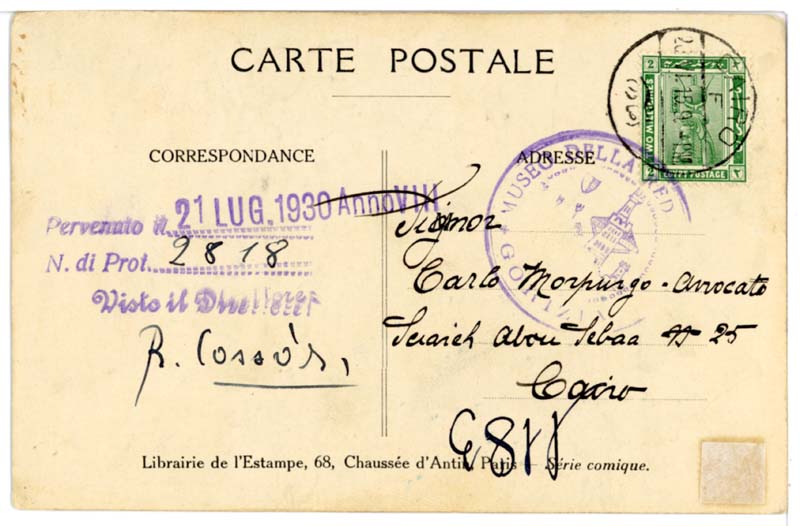 CARTE POSTALE
CORRESPONDANCE
ADRESSE
CAIRO
2 2
TWO MILLIEMES
EGYPT POSTAGE
Pervenuto il 21 LUG. 1930 Anno VIII
N. di Prot. 2818
Visto il Direttore
MUSEO DELLA RED
Signor
Carlo Morpurgo - Avvocato
Sciarieh Abou Sebaa N 25
Cairo
Librairie de l'Estampe, 68, Chaussée d'Antin, Paris — Série comique.